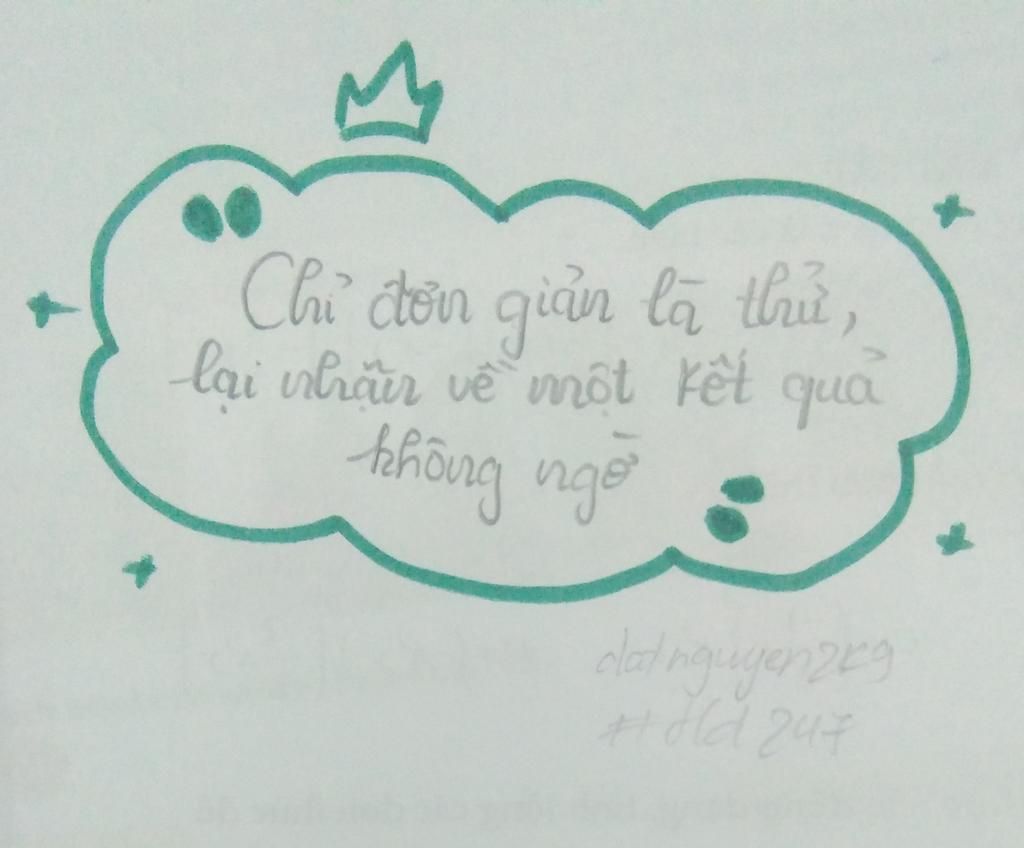 Chỉ đơn giản là thử,
lại nhận về một kết quả
không ngờ
datnguyen2k9